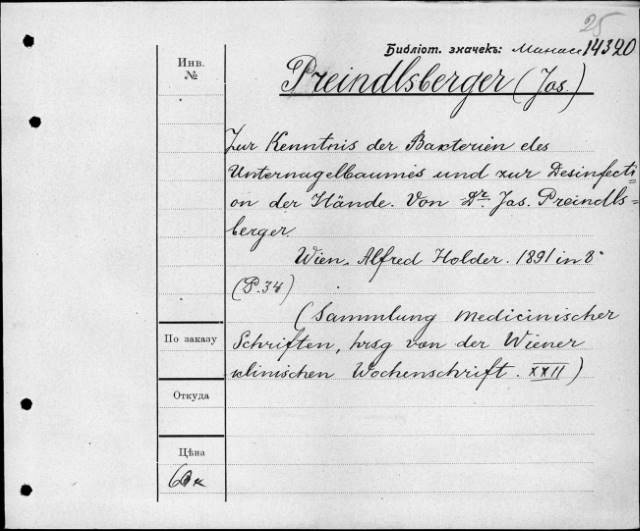 25
Библіот. значекъ: Манас 14320
Инв.
№
Preindlsberger (Jos.)
Zur Kenntnis der Bakterien des
Unternagelbaumes und zur Desinfecti=
on der Hände. Von Dr. Jos. Preindls=
berger.
Wien. Alfred Holder. 1891 in 8°
(P. 34)
(Sammlung medicinischer
По заказу
Schriften, hrsg von der Wiener
klinischen Wochenschrift. XXII)
Откуда
Цѣна